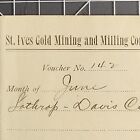 St. Ives Gold Mining and Milling Co
Voucher No. 142
Month of June
Lothrop - Davis C